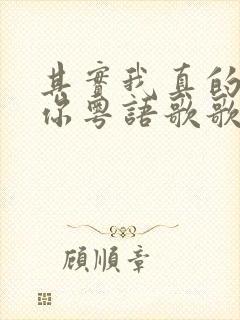 其實我真的
你粵語歌歌
顧順章